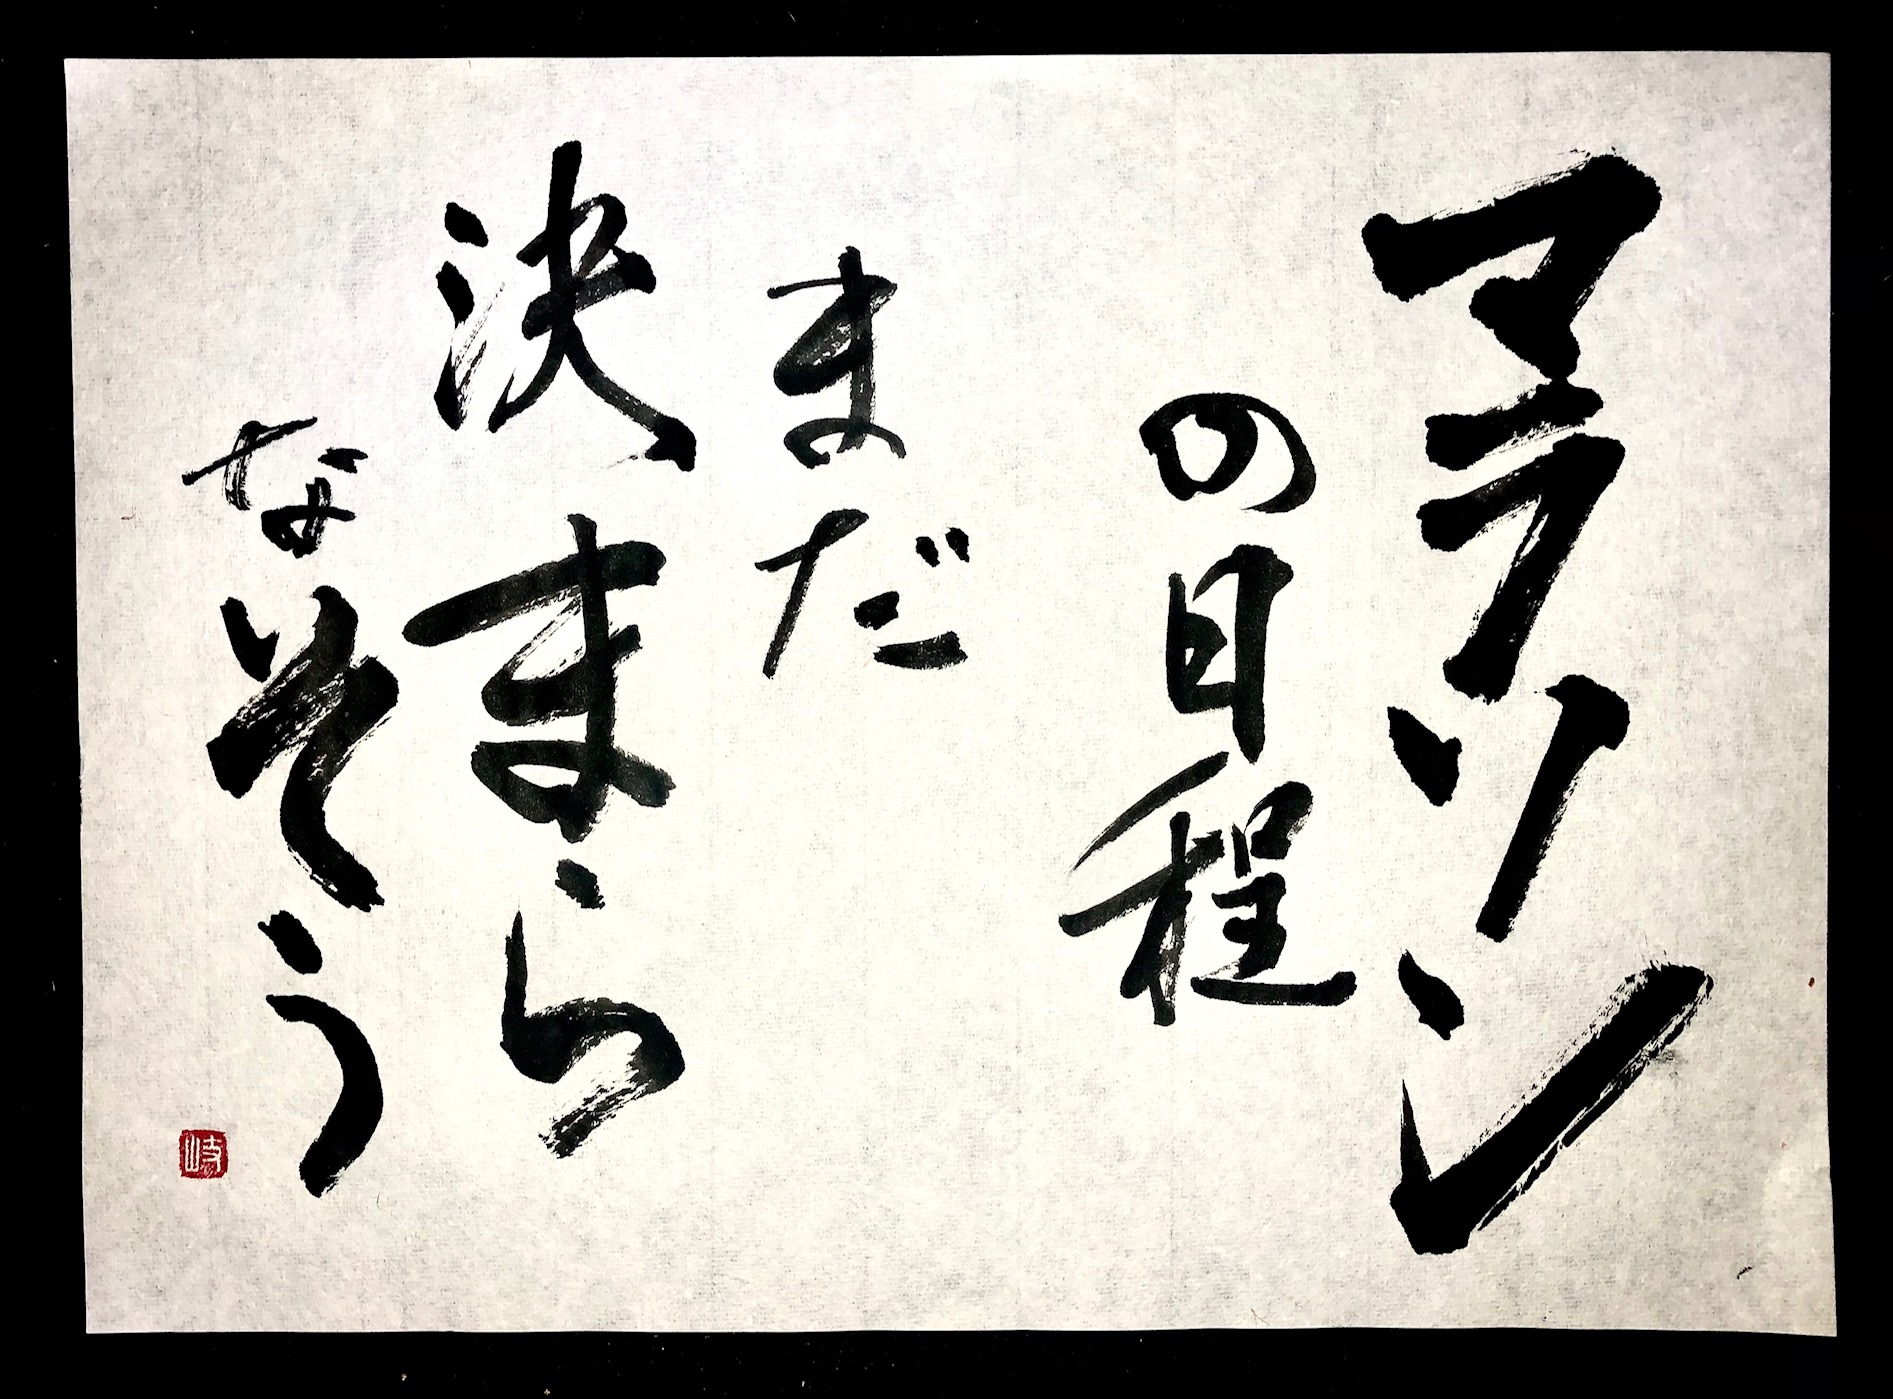 マラソン
の日程
まだ
決まら
なそう
岐